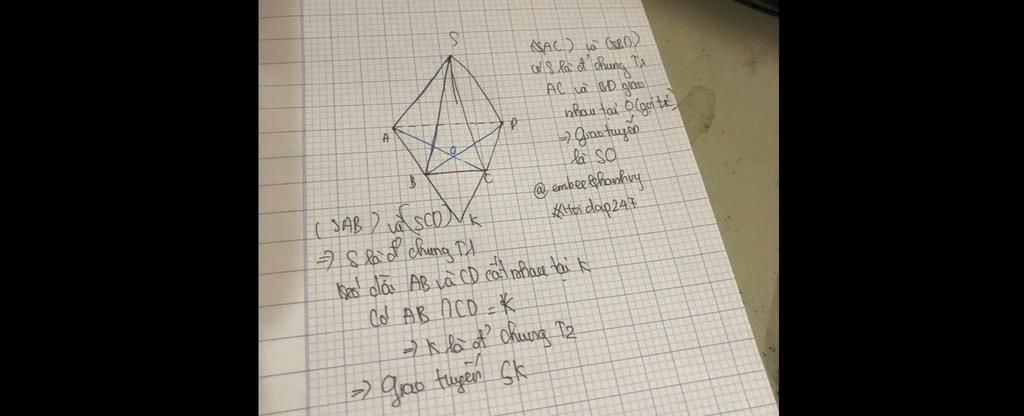 S
A
D
O
B
C
K
(SAC) và (SBD)
có S là đ' chung T1
AC và BD giao
nhau tại O (gọi tê)
=> Giao tuyến
là SO
@embee&hanhvy
#Hoidap247
(SAB) và (SCD)
=> S là đ' chung T1
kéo dài AB và CD cắt nhau tại K
Có AB ∩ CD = K
=> K là đ' chung T2
=> Giao tuyến SK